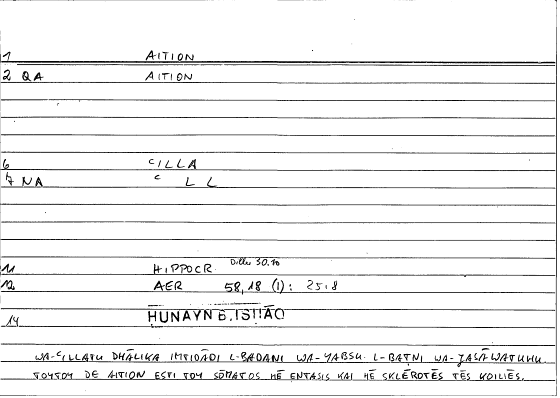 1 AITION
2 QA AITION
6 ʿILLA
7 NA ʿ L L
11 HIPPOCR. Diller 30.10
12 AER 58,18 (1): 25:8
14 HUNAYN B. ISḤĀQ
WA-ʿILLATU DHĀLIKA IMTIDĀDI L-BADANI WA-YABSU L-BAṬNI WA-JASĀWATUHU.
TOYTOY DE AITION ESTI TOY SŌMATOS HĒ ENTASIS KAI HĒ SKLĒROTĒS TĒS KOILIĒS.